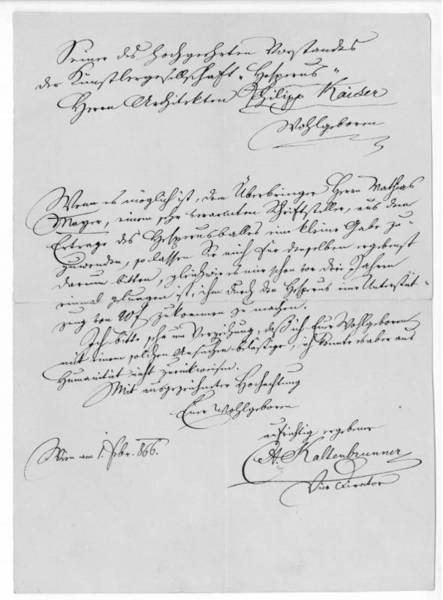 Seiner des hochgeehrten Vorstandes
der Künstlergesellschaft „Hesperus“
Herrn Architekten Philipp Kaiser
Wohlgeboren
Wenn es möglich ist, dem Überbringer Herrn Mathias
Mayer, einem sehr verarmten Schriftsteller, aus dem
Ertrage des Hesperusballes eine kleine Gabe zu-
zuwenden, so lassen Sie mich für denselben ergebenst
darum bitten, gleichwie es mir schon vor drei Jahren
einmal gelungen ist, ihm durch die Hesperus eine Unterstüt-
zung von 40 f zukommen zu machen.
Ich bitte sehr um Verzeihung, daß ich Eure Wohlgeboren
mit einem solchen Ansuchen belästige, ich konnte aber aus
Humanität nicht zurückweisen.
Mit ausgezeichneter Hochachtung
Eure Wohlgeboren
aufrichtig ergebener
Wien am 1. Febr. 866.
Kaltenbrunner